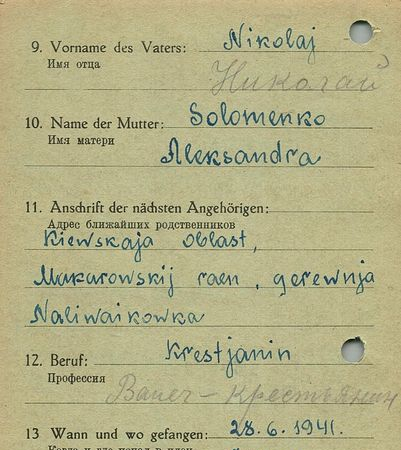 9. Vorname des Vaters: Nikolaj
Имя отца
Николай
10. Name der Mutter: Solomenko
Имя матери
Aleksandra
11. Anschrift der nächsten Angehörigen:
Адрес ближайших родственников
Kiewskaja oblast,
Makarowskij raen, gerewnja
Naliwaikowka
12. Beruf: Krestjanin
Профессия
Bauer - крестьянин
13 Wann und wo gefangen: 28. 6. 1941.